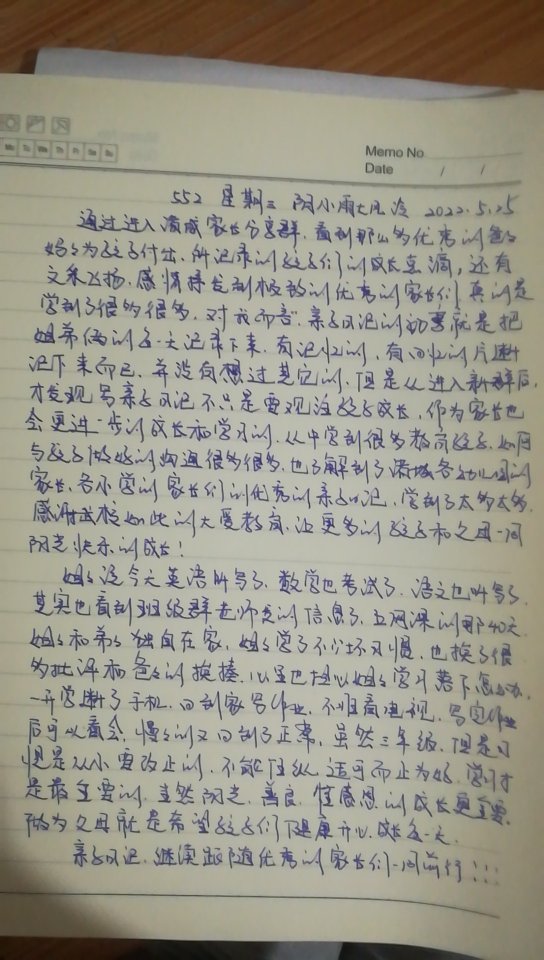 Mo Tu We Th Fr Sa Su
Memo No
Date / /
552 星期三 阴小雨大风冷 2022.5.25
通过进入诸城家长分享群,看到那么多优秀的爸爸
妈妈为孩子付出,所记录的孩子们的成长点滴,还有
文采飞扬,感情抒发到极致的优秀的家长们真的是
学到了很多很多,对我而言,亲子日记的初衷就是把
姐弟俩的每一天记录下来,有记忆的,有回忆的片断
记下来而已,并没有想过其它的,但是从进入新群后,
才发现写亲子日记不只是要观注孩子成长,作为家长也
会更进一步的成长和学习的,从中学到很多教育孩子,如何
与孩子做好的沟通很多很多,也了解到了诸城各幼儿园的
家长,各小学的家长们的优秀的亲子日记,学到了太多太多,
感谢学校如此的大爱教育,让更多的孩子和父母一同
阳光快乐的成长!
姐姐说今天英语听写了,数学也考试了,语文也听写了
其实也看到班级群老师发的信息了,上网课的那40天
姐姐和弟弟独自在家,姐姐学了不少坏习惯,也挨了很
多批评和爸爸的挨揍,心里也担心姐姐学习落下怎么办,
一开学断了手机,回到家写作业,不准看电视,写完作业
后可以看会,慢慢的又回到了正常,虽然三年级,但是习
惯是从小要改正的,不能任纵,适可而止为好,学习才
是最主要的,当然阳光,善良,懂感恩的成长更重要,
做为父母就是希望孩子们健康开心成长每一天.
亲子日记,继续跟随优秀的家长们一同前行!!!